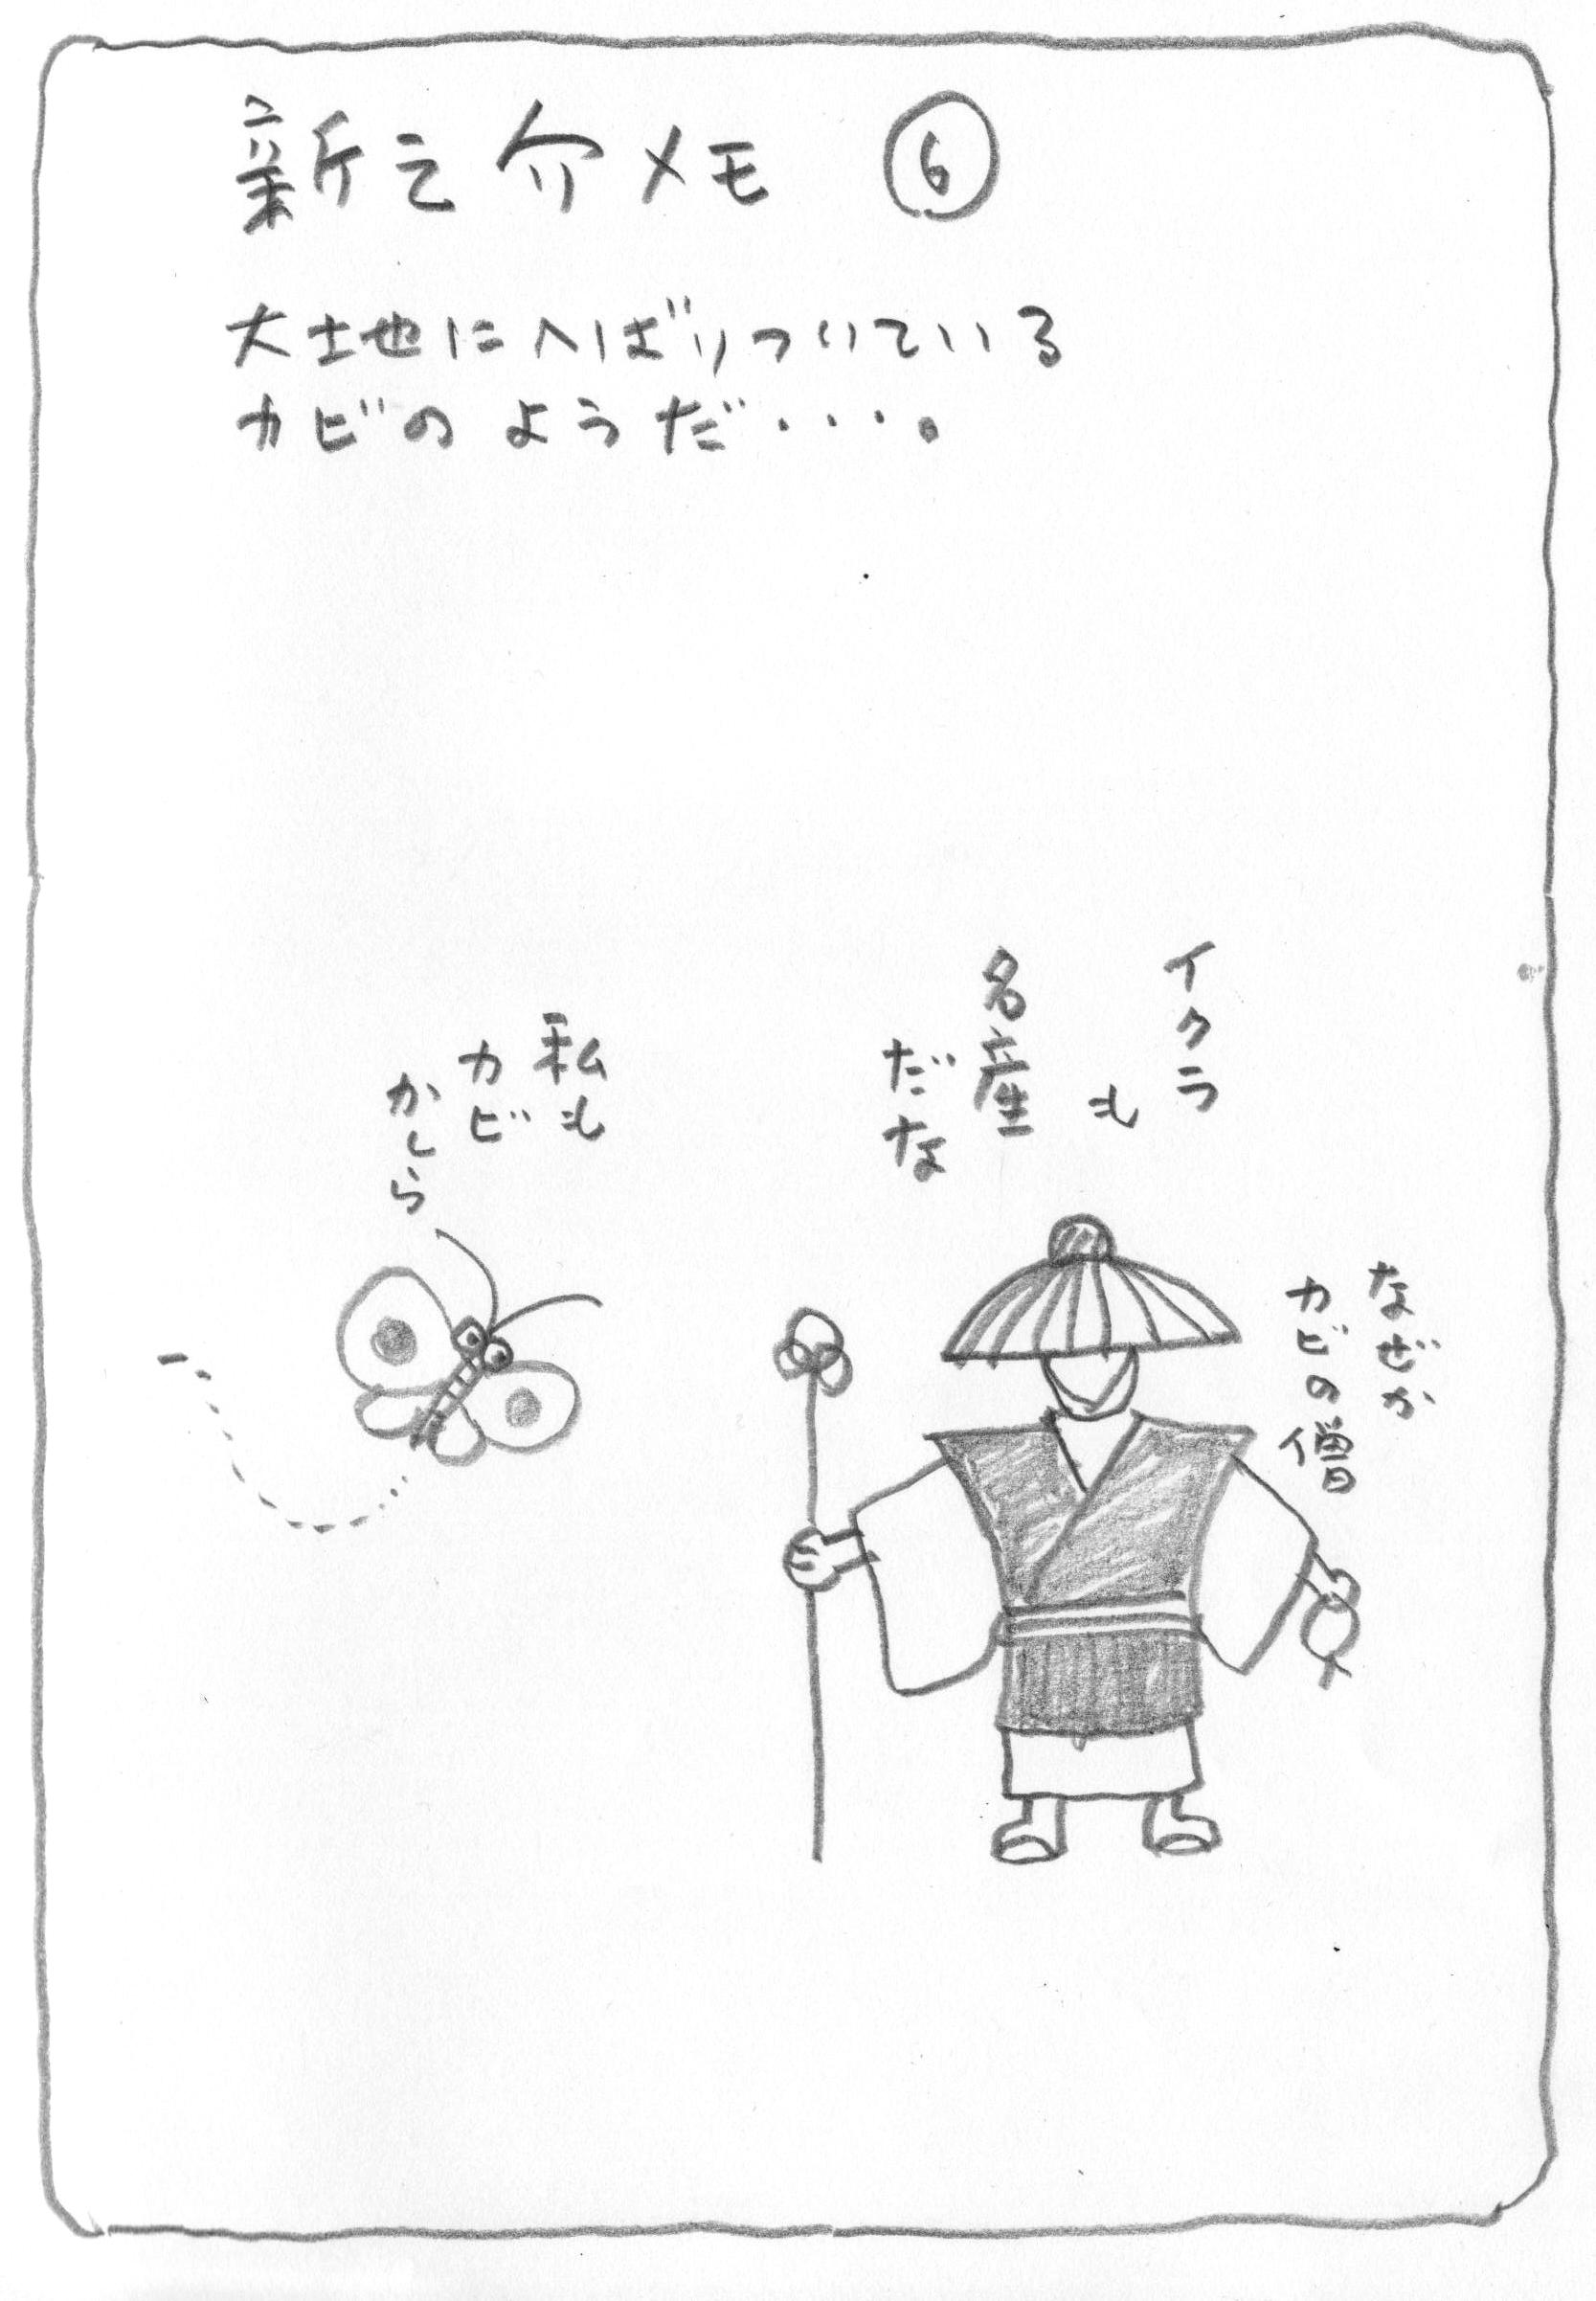 新之介メモ ⑥
大地にへばりついている
カビのようだ・・・。
イクラ
も
名産
だな
なぜか
カビの僧
私も
カビ
かしら